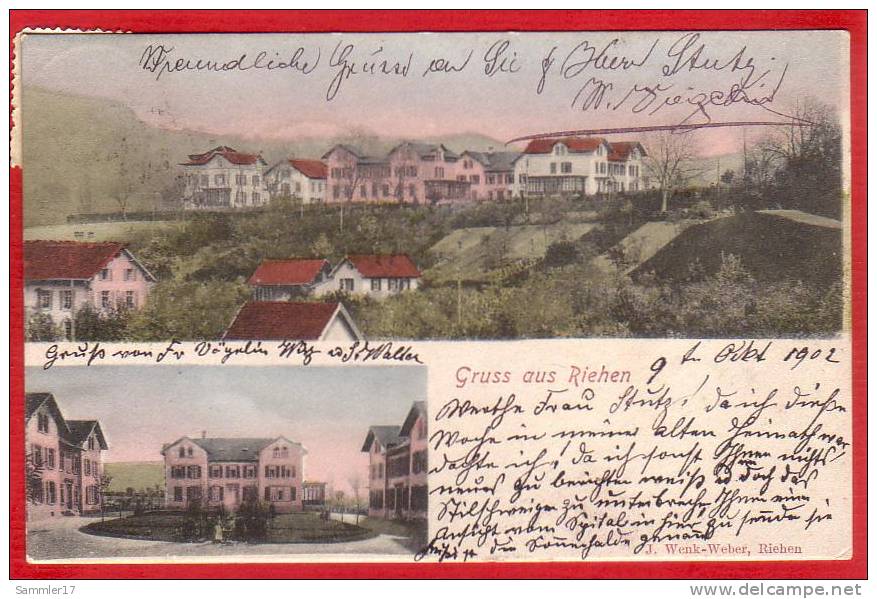 Freundliche Grüsse an Sie & Herr Stutz.
W. Vögelin
Gruß von Fr Vögelin Wtz u St Walter
Gruss aus Riehen
9 t. Okt 1902
Werthe Frau Stutz! da ich diese
Woche in meiner alten Heimath war
dachte ich, da ich sonst Ihnen nichts
neues zu berichten weiß doch das
Stilschweigen zu unterbrechen Ihnen eine
Ansicht vom Spital in hier zu senden sie
die Sonnenhalde genannt
J. Wenk-Weber, Riehen
Sammler17
delcampe.net